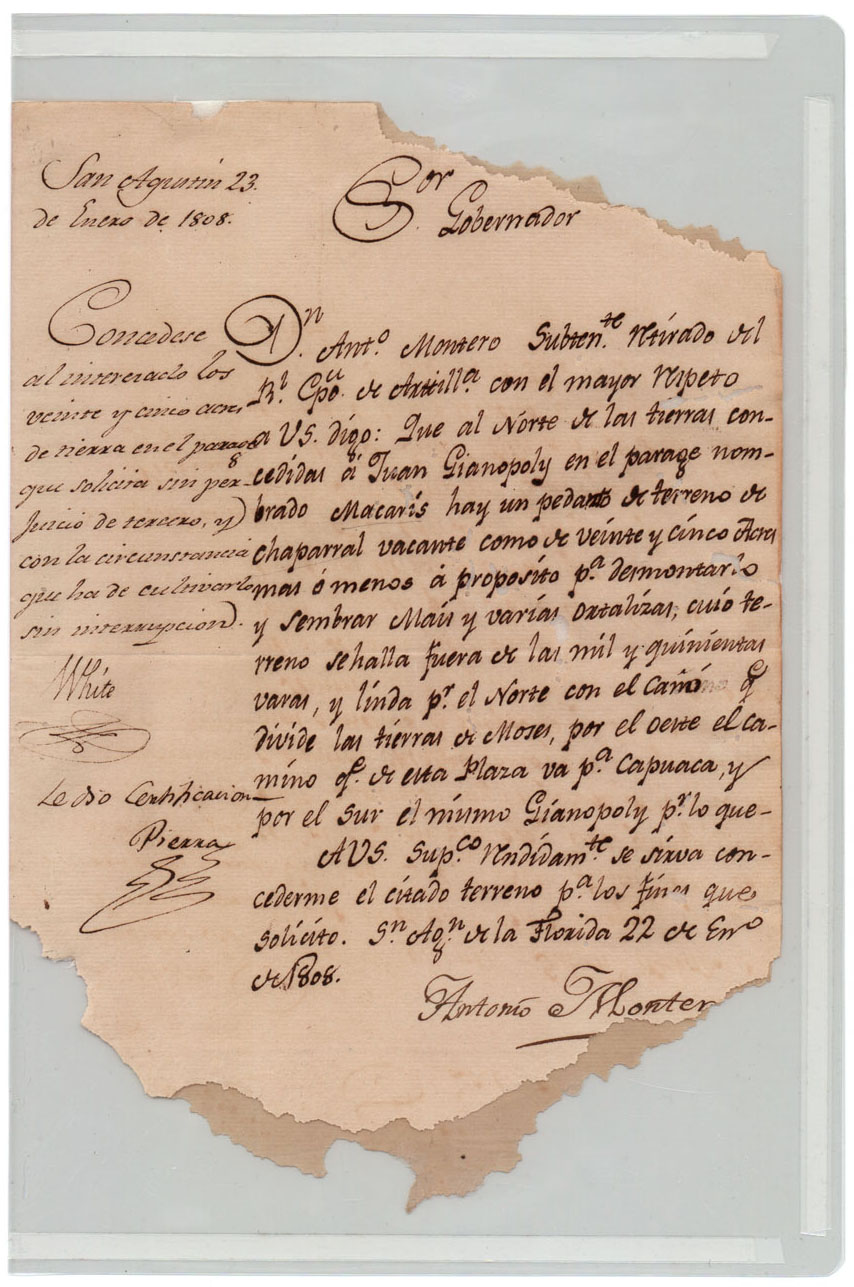 San Agustin 23.
de Enero de 1808.
Sor. Gobernador
Concedese
al interesado los
veinte y cinco acres
de tierra en el parage
que solicita sin per-
juicio de tercero, y
con la circunstancia
que ha de cultivarlo
sin interrupcion.
White
Le dio Certificacion
Pierra
Dn. Anto. Montero Subtente. Retirado del
Rl. Cpo. de Artilla. con el mayor Respeto
a VS. digo: Que al Norte de las tierras con-
cedidas á Juan Gianopoly en el parage nom-
brado Macaris hay un pedazo de terreno de
chaparral vacante como de veinte y cinco Acres
mas ó menos á proposito pa. desmontarlo
y sembrar Mais y varias ortalizas, cuio te-
rreno se halla fuera de las mil y quinientas
varas, y linda pr. el Norte con el qe
divide las tierras de Moses, por el oeste el ca-
mino qe. de esta Plaza va pa. Capuaca, y
por el Sur el mismo Gianopoly pr. lo que-
A VS. Supco. Rendidamte. se sirva con-
cederme el citado terreno pa. los fines que
solicito. Sn. Agn. de la Florida 22 de Eno.
de 1808.
Antonio Monter